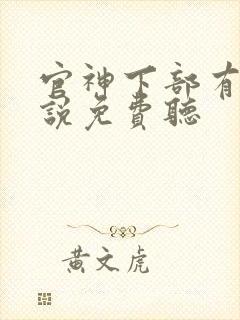 官神下部有
說免費聽
黃文虎